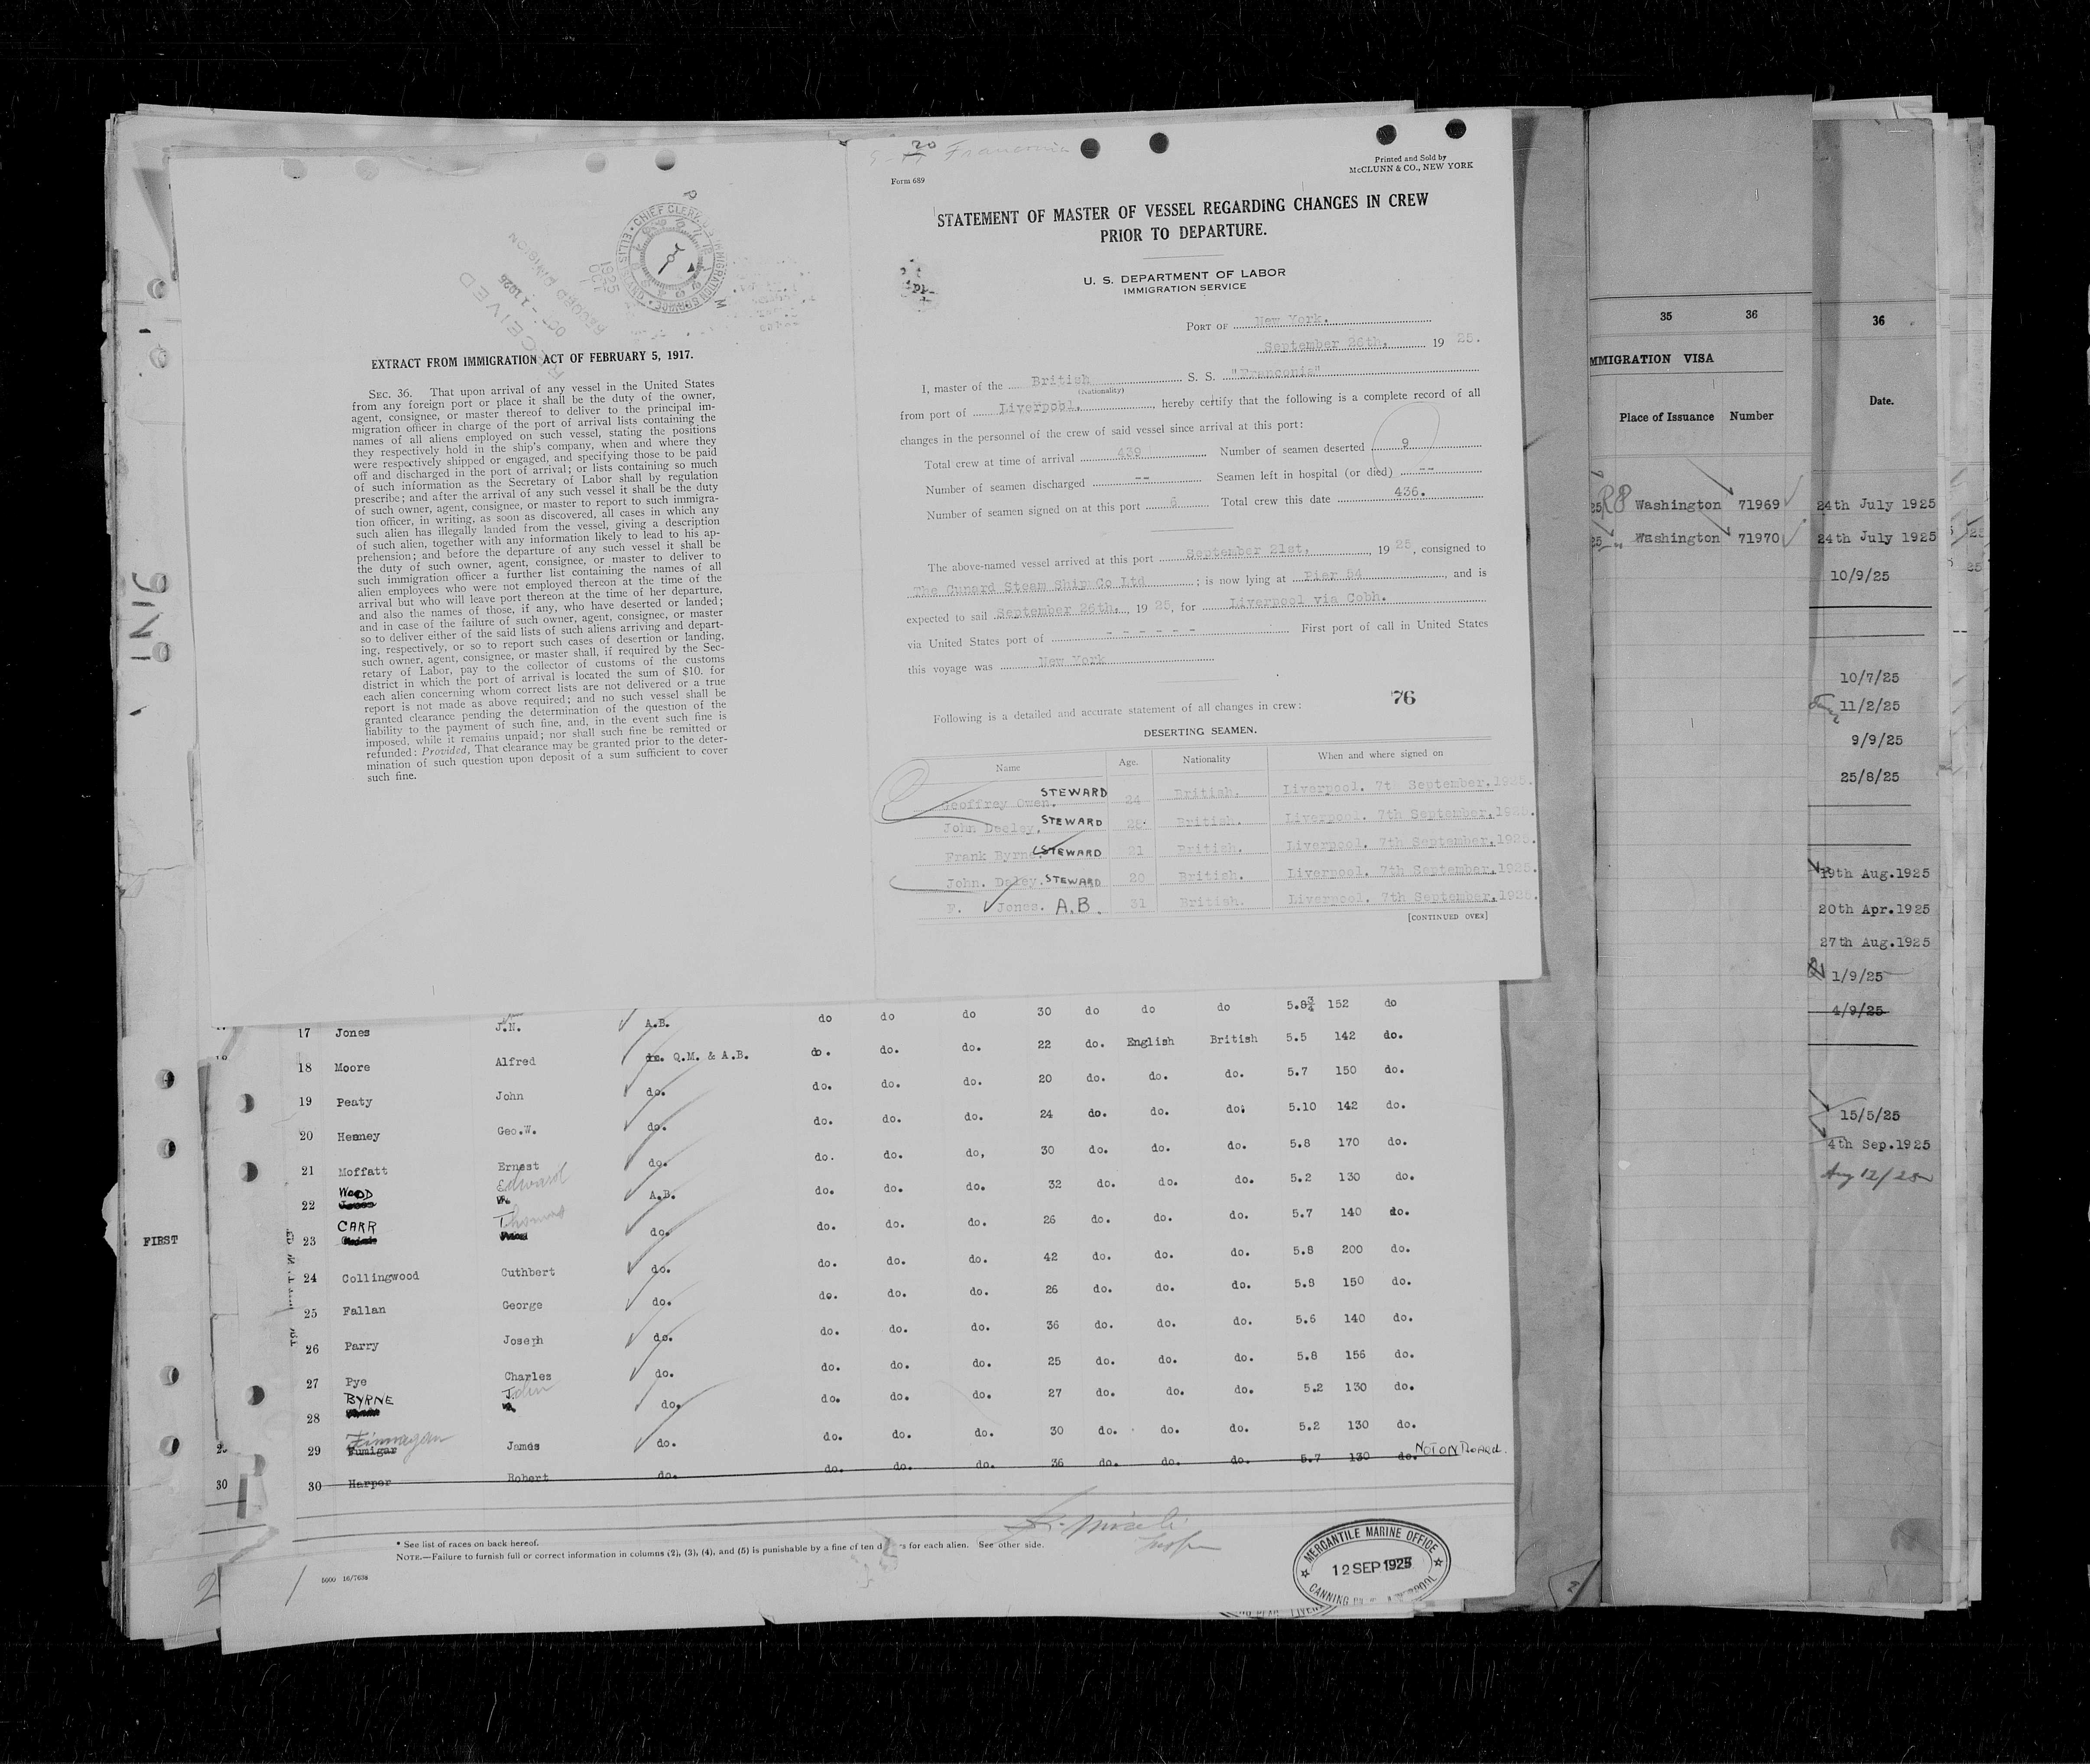 20
Franconia
Form 689
Printed and Sold by
McCLUNN & CO., NEW YORK
STATEMENT OF MASTER OF VESSEL REGARDING CHANGES IN CREW
PRIOR TO DEPARTURE.
U. S. DEPARTMENT OF LABOR
IMMIGRATION SERVICE
PORT OF New York.
September 26th. 19 25.
I, master of the British S. S. "Franconia"
(Nationality)
from port of Liverpool. , hereby certify that the following is a complete record of all
changes in the personnel of the crew of said vessel since arrival at this port:
Total crew at time of arrival 439 Number of seamen deserted 9
Number of seamen discharged -- Seamen left in hospital (or died) --
Number of seamen signed on at this port 6 Total crew this date 436.
The above-named vessel arrived at this port September 21st. , 19 25, consigned to
The Cunard Steam Ship Co Ltd ; is now lying at Pier 54 , and is
expected to sail September 26th. , 19 25, for Liverpool via Cobh.
via United States port of - - - - - - First port of call in United States
this voyage was New York
76
Following is a detailed and accurate statement of all changes in crew:
DESERTING SEAMEN.
Name Age. Nationality When and where signed on
Geoffrey Owen. STEWARD 24 British. Liverpool. 7th September. 1925.
John Deeley. STEWARD 28 British. Liverpool. 7th September. 1925.
Frank Byrne. STEWARD 21 British. Liverpool. 7th September. 1925.
John. Daley. STEWARD 20 British. Liverpool. 7th September. 1925.
F. Jones. A.B. 31 British. Liverpool. 7th September. 1925.
[CONTINUED OVER]
RECEIVED
OCT - 1 1925
RECORD DIVISION
1925
OCT
EXTRACT FROM IMMIGRATION ACT OF FEBRUARY 5, 1917.
SEC. 36. That upon arrival of any vessel in the United States
from any foreign port or place it shall be the duty of the owner,
agent, consignee, or master thereof to deliver to the principal im-
migration officer in charge of the port of arrival lists containing the
names of all aliens employed on such vessel, stating the positions
they respectively hold in the ship's company, when and where they
were respectively shipped or engaged, and specifying those to be paid
off and discharged in the port of arrival; or lists containing so much
of such information as the Secretary of Labor shall by regulation
prescribe; and after the arrival of any such vessel it shall be the duty
of such owner, agent, consignee, or master to report to such immigra-
tion officer, in writing, as soon as discovered, all cases in which any
such alien has illegally landed from the vessel, giving a description
of such alien, together with any information likely to lead to his ap-
prehension; and before the departure of any such vessel it shall be
the duty of such owner, agent, consignee, or master to deliver to
such immigration officer a further list containing the names of all
alien employees who were not employed thereon at the time of the
arrival but who will leave port thereon at the time of her departure,
and also the names of those, if any, who have deserted or landed;
and in case of the failure of such owner, agent, consignee, or master
so to deliver either of the said lists of such aliens arriving and depart-
ing, respectively, or so to report such cases of desertion or landing,
such owner, agent, consignee, or master shall, if required by the Sec-
retary of Labor, pay to the collector of customs of the customs
district in which the port of arrival is located the sum of $10. for
each alien concerning whom correct lists are not delivered or a true
report is not made as above required; and no such vessel shall be
granted clearance pending the determination of the question of the
liability to the payment of such fine, and, in the event such fine is
imposed, while it remains unpaid; nor shall such fine be remitted or
refunded: Provided, That clearance may be granted prior to the deter-
mination of such question upon deposit of a sum sufficient to cover
such fine.
17 Jones J.N. A.B. do do do 30 do do do 5.8¾ 152 do
18 Moore Alfred Q.M. & A.B. do. do. do. 22 do. English British 5.5 142 do.
19 Peaty John do. do. do. do. 20 do. do. do. 5.7 150 do.
20 Henney Geo.W. do. do. do. do. 24 do. do. do. 5.10 142 do.
21 Moffatt Ernest do. do. do. do. 30 do. do. do. 5.8 170 do.
22 WOOD Edward A.B. do. do. do. 32 do. do. do. 5.2 130 do.
23 CARR Thomas do. do. do. do. 26 do. do. do. 5.7 140 do.
24 Collingwood Cuthbert do. do. do. do. 42 do. do. do. 5.8 200 do.
25 Fallan George do. do. do. do. 26 do. do. do. 5.8 150 do.
26 Parry Joseph do. do. do. do. 36 do. do. do. 5.6 140 do.
27 Pye Charles do. do. do. do. 25 do. do. do. 5.8 156 do.
28 BYRNE John do. do. do. do. 27 do. do. do. 5.2 130 do.
29 Finnegan Fumigar James do. do. do. do. 30 do. do. do. 5.2 130 do.
30 Harper Robert do. do. do. do. 36 do. do. do. 5.7 130 do. NOT ON BOARD.
* See list of races on back hereof.
NOTE.—Failure to furnish full or correct information in columns (2), (3), (4), and (5) is punishable by a fine of ten for each alien. See other side.
5000 16/7638
MERCANTILE MARINE OFFICE
12 SEP 1925
CANNING
FIRST
30
35 36
IMMIGRATION VISA
Place of Issuance Number
25 R8 Washington 71969
25 Washington 71970
36
Date.
24th July 1925
24th July 1925
10/9/25
10/7/25
11/2/25
9/9/25
25/8/25
19th Aug.1925
20th Apr.1925
27th Aug.1925
1/9/25
4/9/25
15/5/25
4th Sep.1925
Aug 12/25